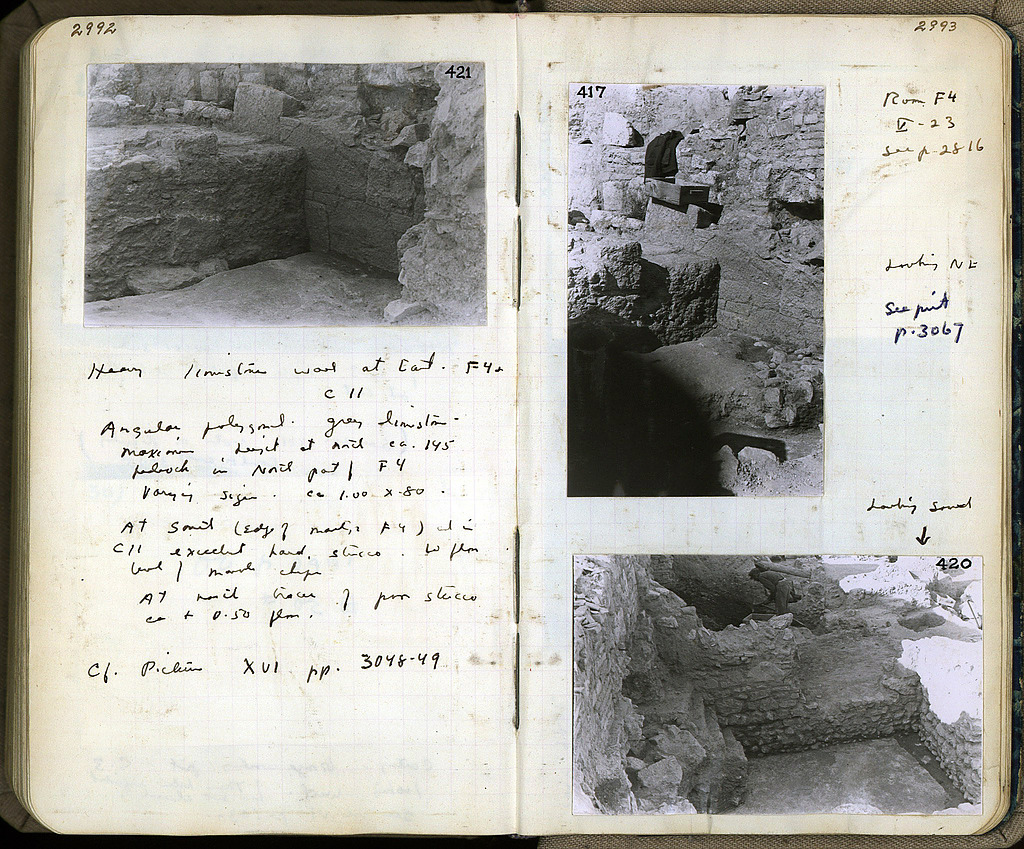 2992
421
Heavy limestone wall at East. F4 &
C 11
Angular polygonal. grey limestone
maximum height at north ca. 145
in North part of F4
Varying sizes. ca 1.00 x .80.
At South (edge of F4) in
C 11 excellent hard stucco. to floor
level of marble chips
At north traces of poor stucco
ca + 0.50 floor.
Cf. Picture XVI pp. 3048-49
2993
417
Room F4
V - 23
See p. 2816
Looking NE
See print
p. 3067
Looking South
↓
420